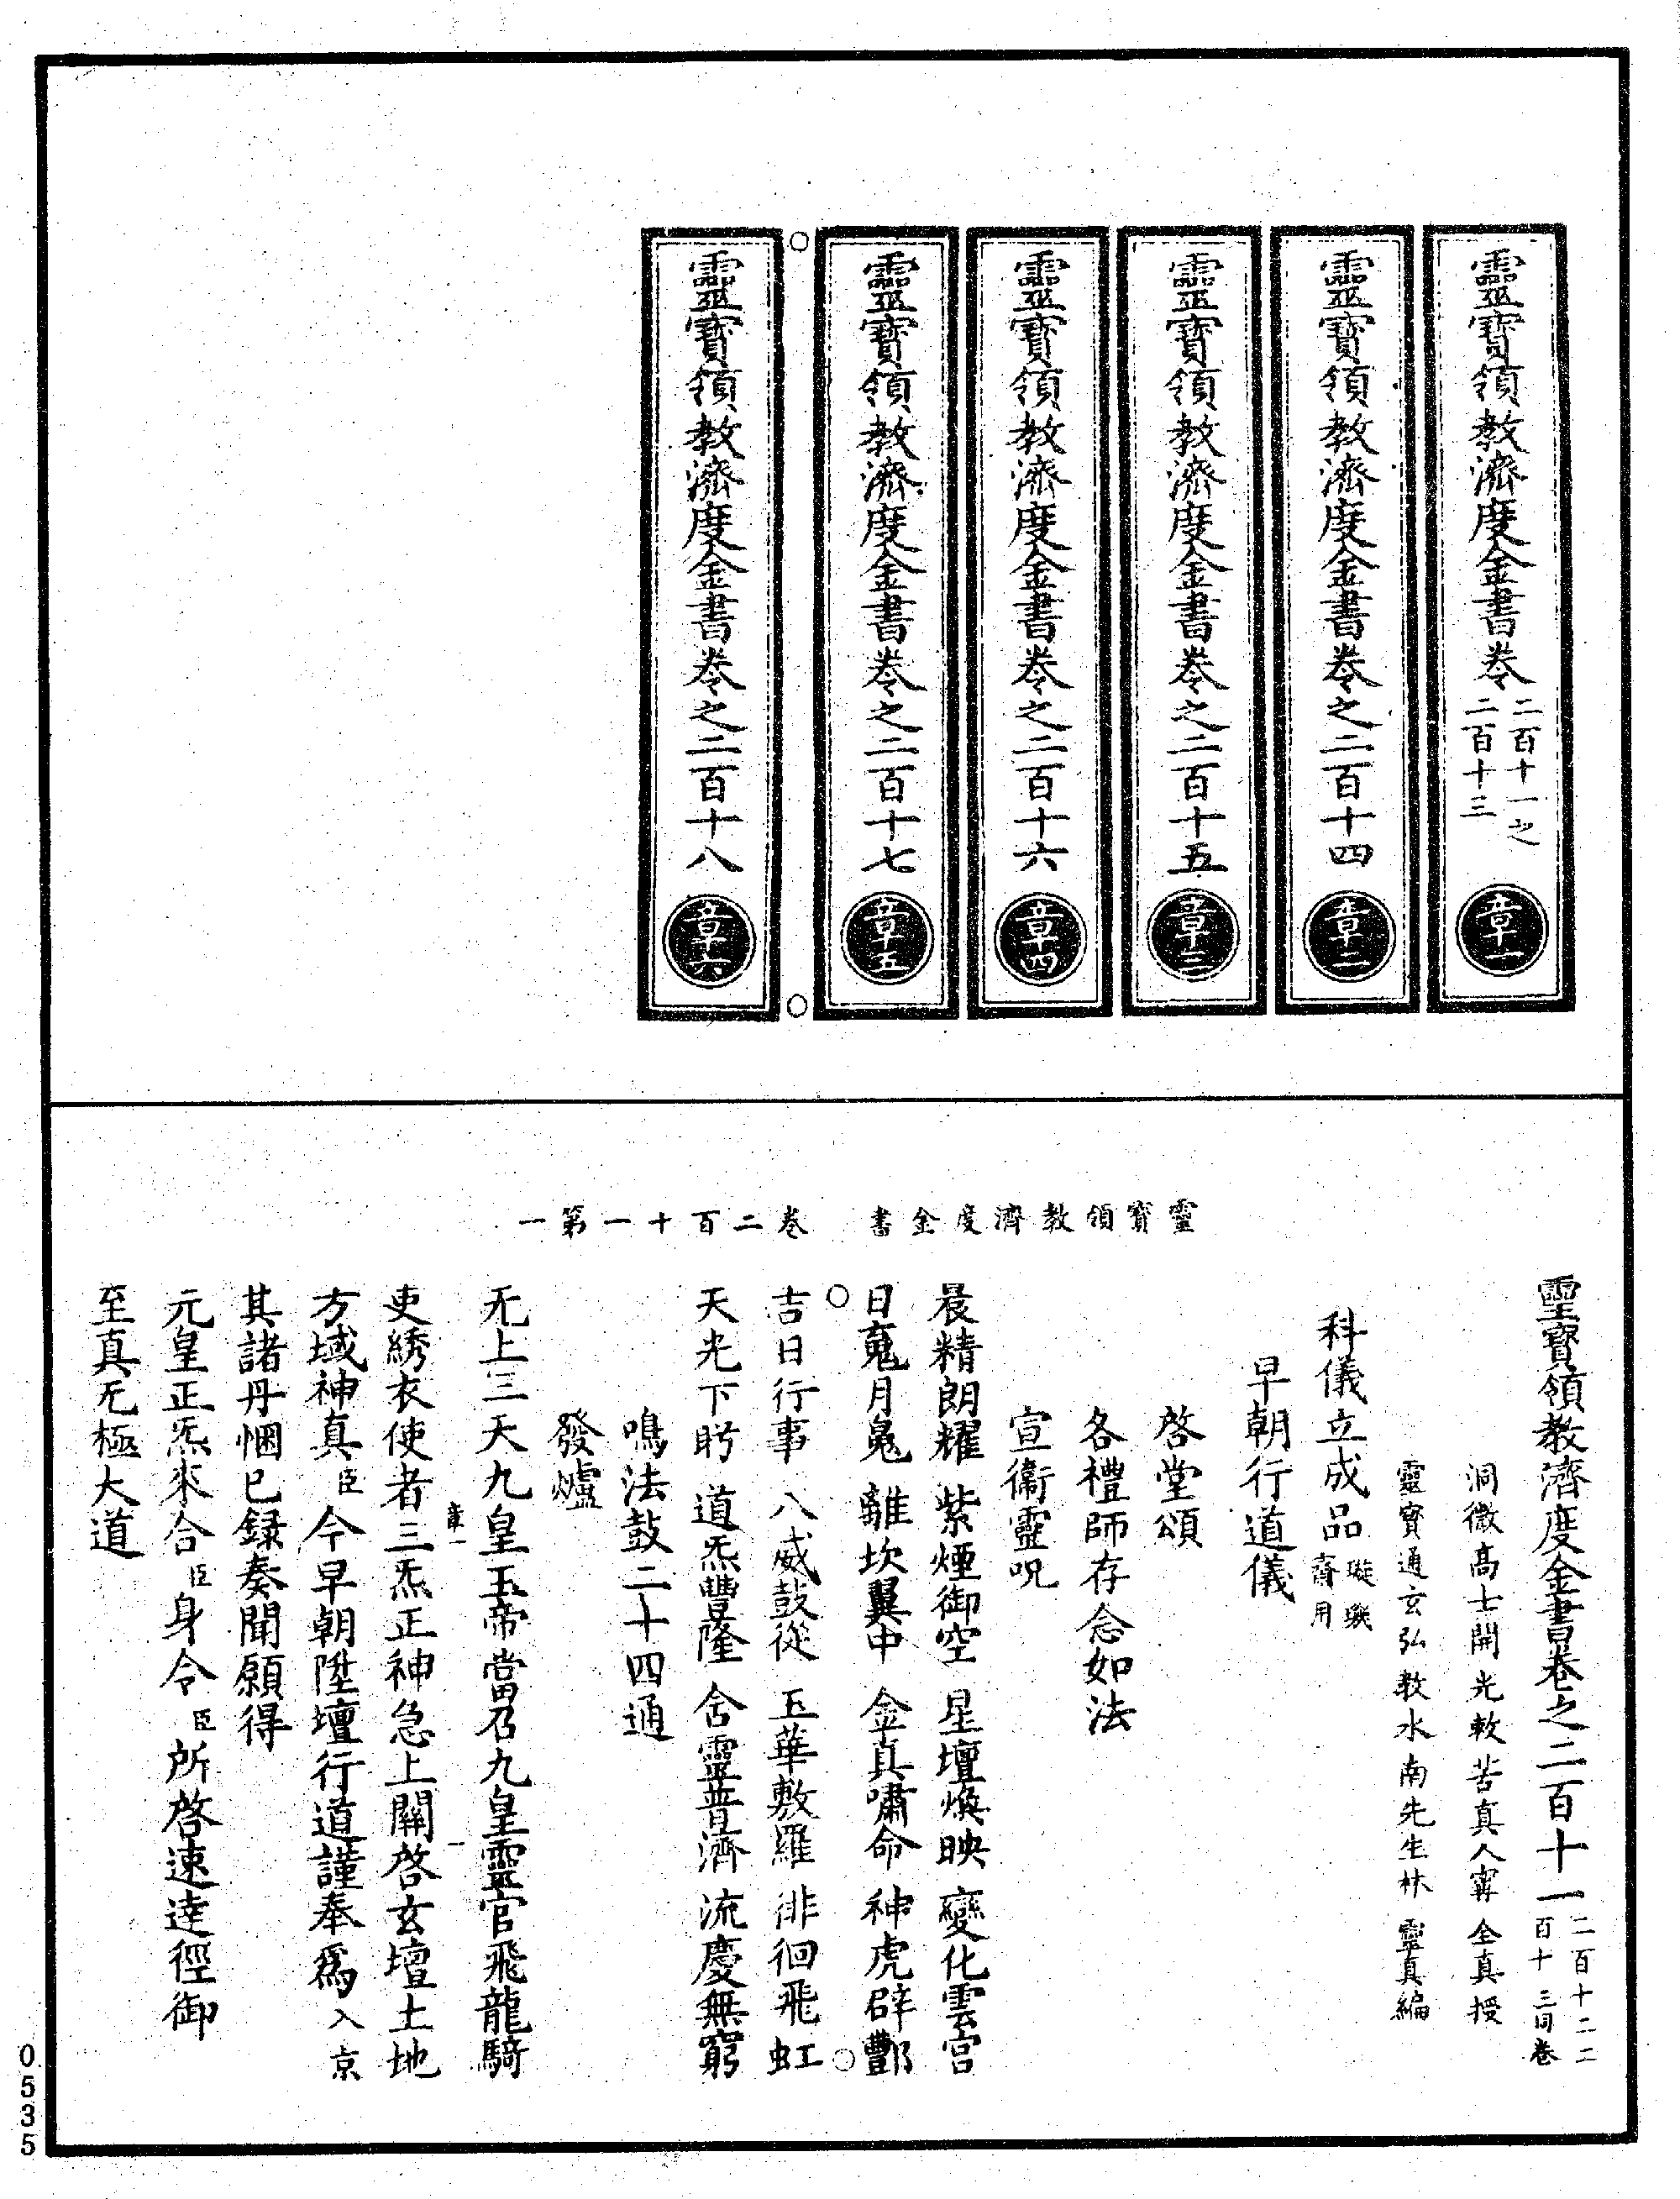 靈寶領教濟度金書卷二百十一之二百十三 章一
靈寶領教濟度金書卷之二百十四 章二
靈寶領教濟度金書卷之二百十五 章三
靈寶領教濟度金書卷之二百十六 章四
靈寶領教濟度金書卷之二百十七 章五
靈寶領教濟度金書卷之二百十八 章六
靈寶領教濟度金書 卷二百十一第一
靈寶領教濟度金書卷之二百十一 二百十二二百十三同卷
洞微高士開光救苦真人甯全真授
靈寶通玄弘教水南先生林靈真編
科儀立成品 璇璣齋用
早朝行道儀
啓堂頌
各禮師存念如法
宣衞靈呪
晨精朗耀 紫煙御空 星壇煥映 變化雲宮
日䰟月鬼 離坎翼中 金真嘯命 神虎辟酆
吉日行事 八威鼓從 玉華敷羅 徘徊飛虹
天光下盻 道炁豐隆 含靈普濟 流慶無窮
鳴法鼓二十四通
發爐
无上三天九皇玉帝當召九皇靈官飛龍騎
章一 一
吏綉衣使者三炁正神急上關啓玄壇土地
方域神真臣今早朝陞壇行道謹奉爲入京
其諸丹悃已録奏聞願得
元皇正炁來合臣身令臣所啓速達徑御
至真无極大道
0535